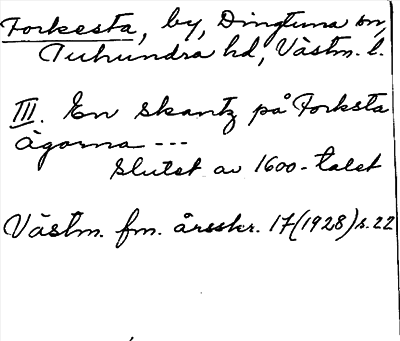 Forkesta, by, Dingtuna sn,
Tuhundra hd, Västm. l.
III. En skantz på Forksta
ägorna ---
slutet av 1600-talet
Västm. fm. årsskr. 17 (1928) s. 22